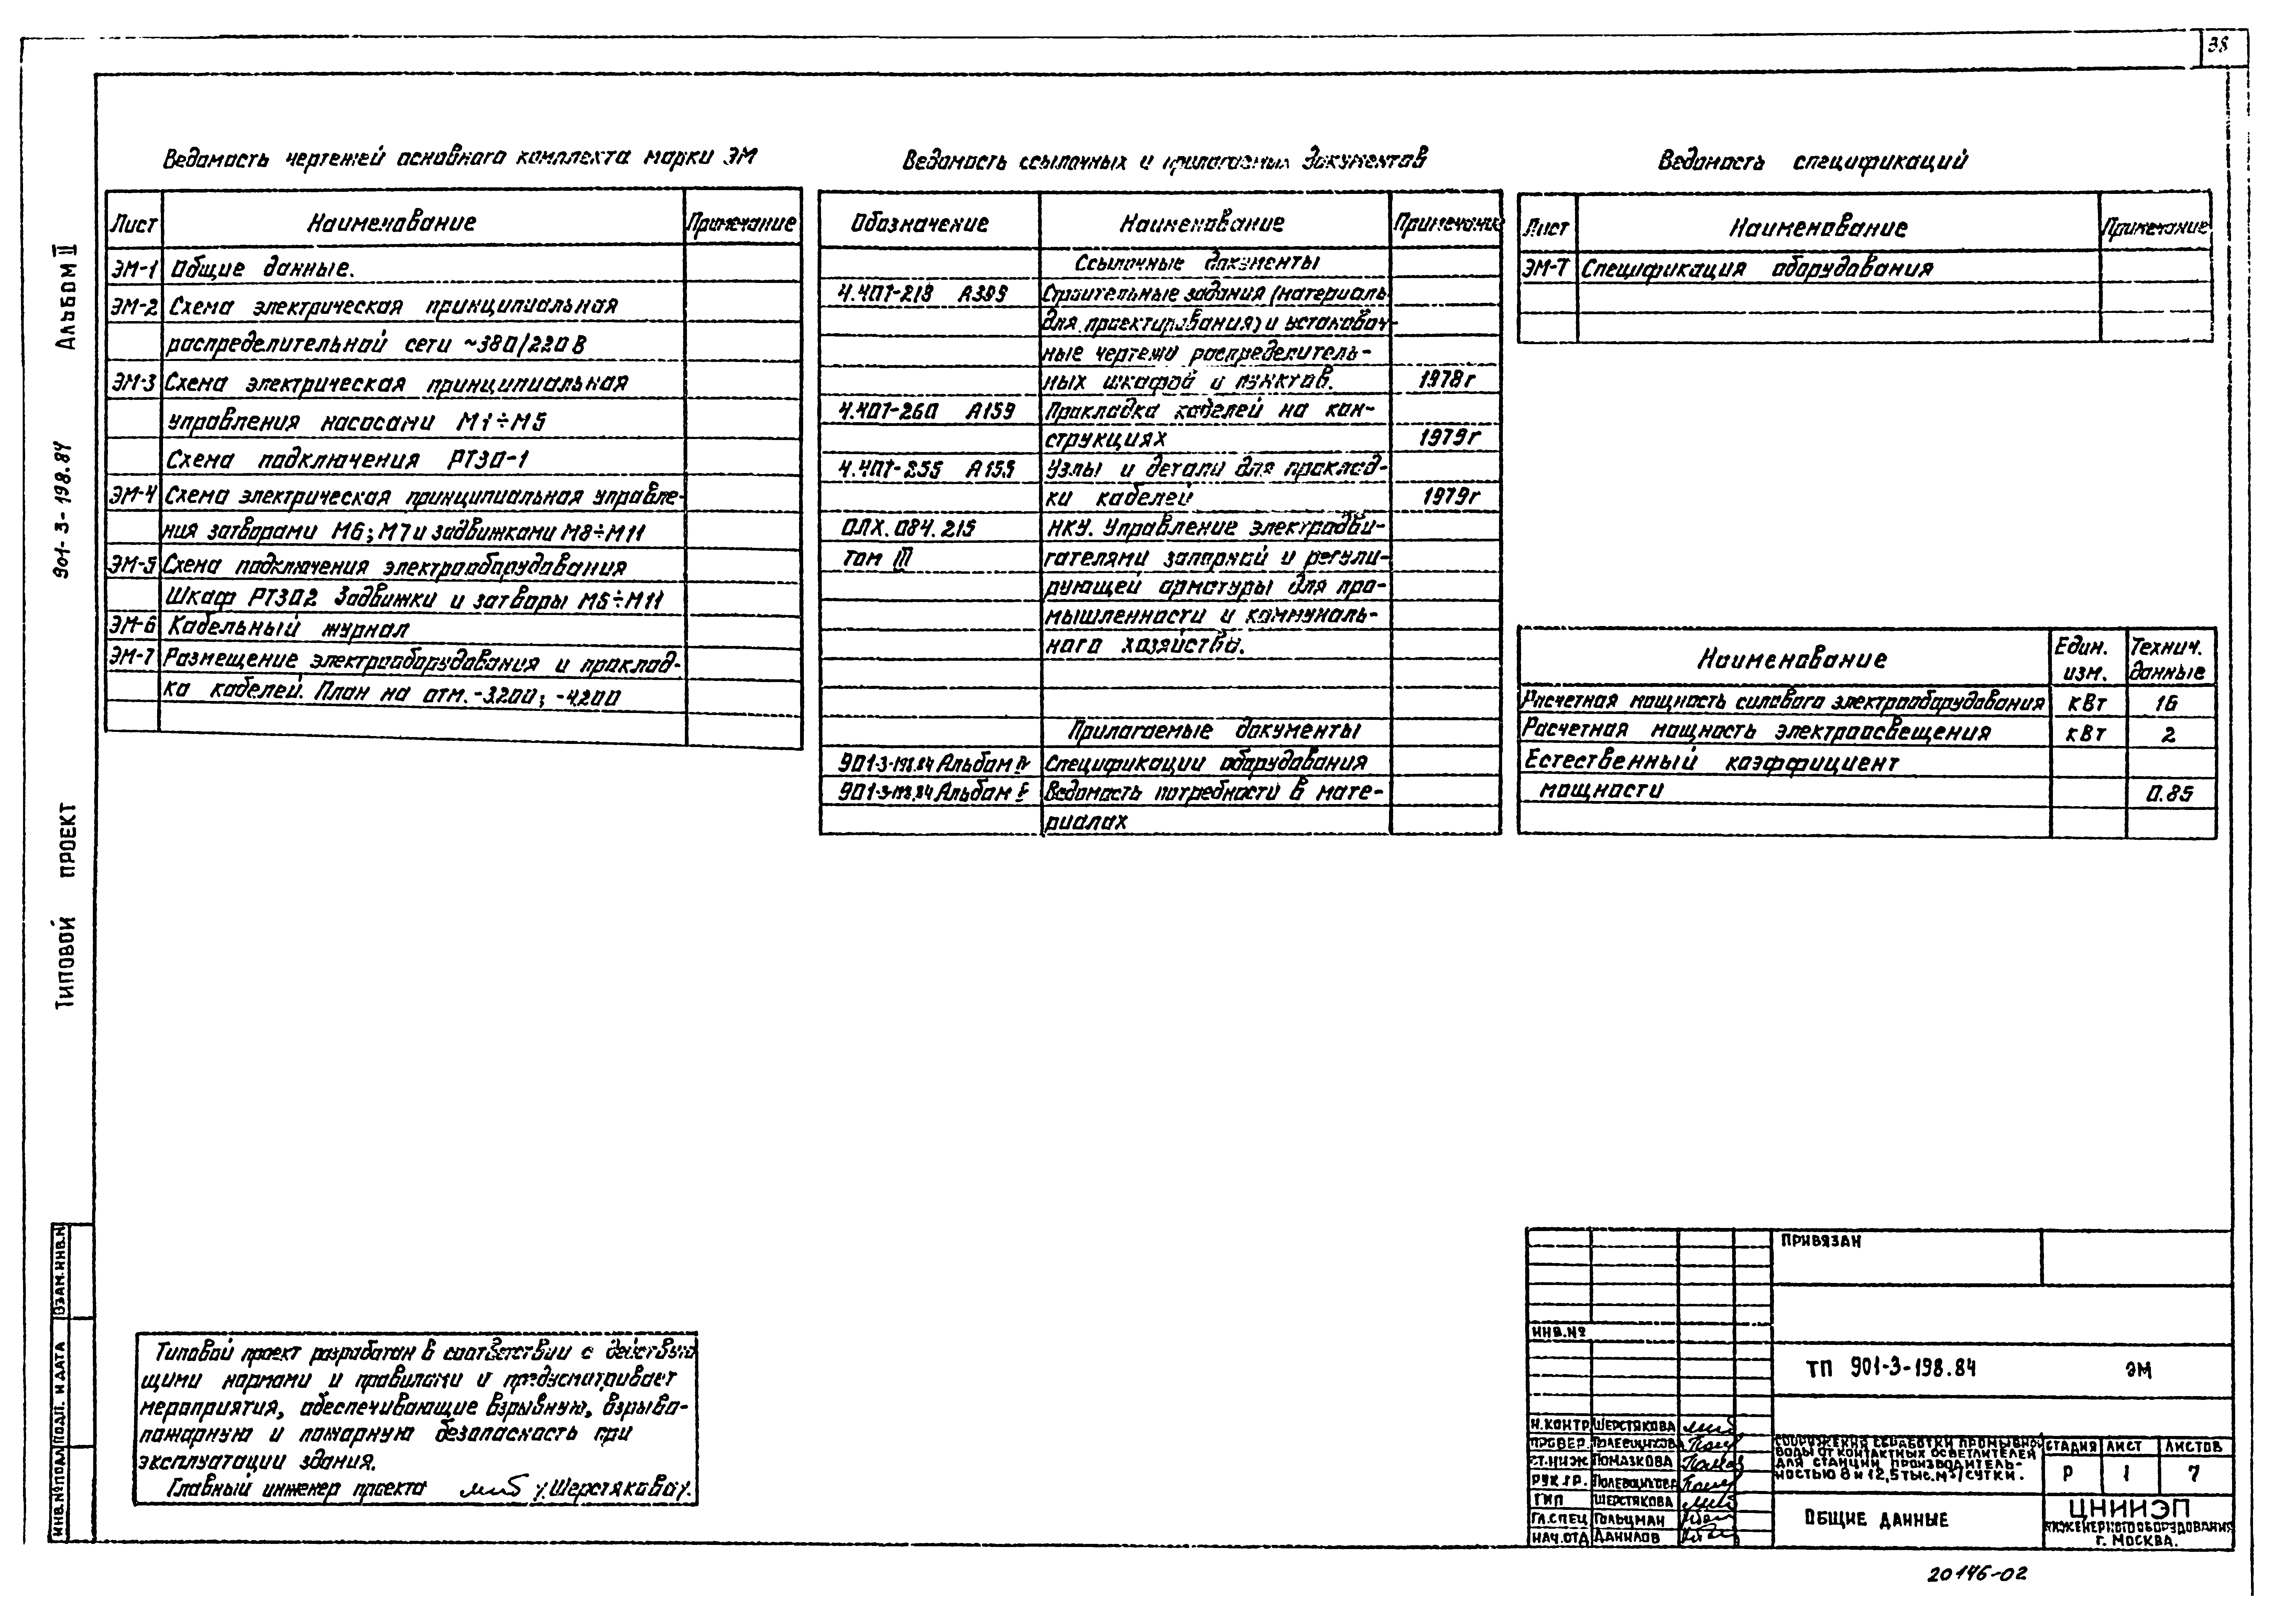 38
Ведомость чертежей основного комплекта марки ЭМ
Лист Наименование Примечание
ЭМ-1 Общие данные.
ЭМ-2 Схема электрическая принципиальная
распределительной сети ~380/220В
ЭМ-3 Схема электрическая принципиальная
управления насосами М1÷М5
Схема подключения РТ30-1
ЭМ-4 Схема электрическая принципиальная управле-
ния затворами М6; М7 и задвижками М8÷М11
ЭМ-5 Схема подключения электрооборудования
Шкаф РТ302 Задвижки и затворы М6÷М11
ЭМ-6 Кабельный журнал
ЭМ-7 Размещение электрооборудования и проклад-
ка кабелей. План на отм. -3.200; -4.200
Ведомость ссылочных и прилагаемых документов
Обозначение Наименование Примечание
Ссылочные документы
4.407-218 А399 Строительные задания (материалы
для проектирования) и установоч-
ные чертежи распределитель-
ных шкафов и пунктов. 1978г
4.407-260 А159 Прокладка кабелей на кон-
струкциях 1979г
4.407-255 А155 Узлы и детали для проклад-
ки кабелей 1979г
ОЛХ.084.215 НКУ. Управление электродви-
том III гателями запорной и регули-
рующей арматуры для про-
мышленности и коммуналь-
ного хозяйства.
Прилагаемые документы
901-3-198.84 Альбом IV Спецификации оборудования
901-3-198.84 Альбом V Ведомость потребности в мате-
риалах
Ведомость спецификаций
Лист Наименование Примечание
ЭМ-7 Спецификация оборудования
Наименование Един. изм. Технич. данные
Расчетная мощность силового электрооборудования кВт 16
Расчетная мощность электроосвещения кВт 2
Естественный коэффициент
мощности 0.85
Альбом II
901-3-198.84
Типовой проект
Взам.инв.н
Подп. и дата
Инв.№подл
Типовой проект разработан в соответствии с действую
щими нормами и правилами и предусматривает
мероприятия, обеспечивающие взрывную, взрыво-
пожарную и пожарную безопасность при
эксплуатации здания.
Главный инженер проекта /Шерстякова/.
Привязан
Инв.№
ТП 901-3-198.84 ЭМ
Н.контр Шерстякова
Провер. Полевщикова
Ст.инж Помазкова
Рук.гр. Полевщикова
ГИП Шерстякова
Гл.спец Гольцман
Нач.отд Данилов
Сооружения обработки промывной
воды от контактных осветлителей
для станции производитель-
ностью 8 и 12,5 тыс.м³/сутки.
Стадия Лист Листов
Р 1 7
Общие данные
ЦНИИЭП
инженерного оборудования
г. Москва.
20146-02